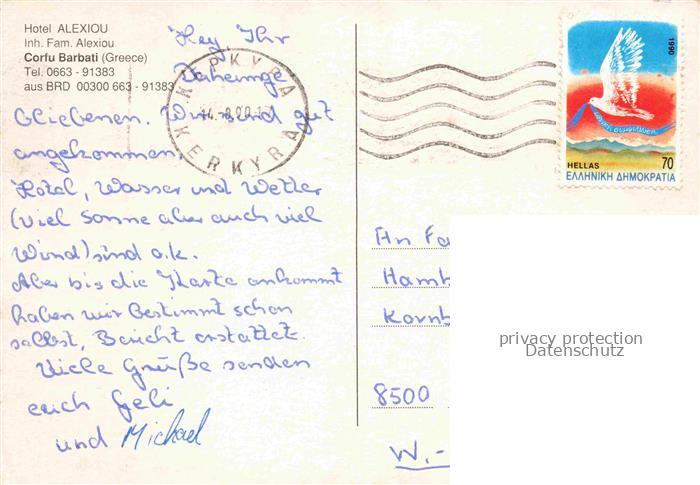 Hotel ALEXIOU
Inh. Fam. Alexiou
Corfu Barbati (Greece)
Tel. 0663 - 91383
aus BRD 00300 663 - 91383
Hey, Ihr
Daheimge
bliebenen. Wir sind gut
angekommen.
Hotel, Wasser und Wetter
(viel Sonne aber auch viel
Wind) sind o.k.
Aber bis die Karte ankommt
haben wir bestimmt schon
selbst, Bericht erstattet.
Viele Grüße senden
euch Geli
und Michael
ΚΕΡΚΥΡΑ
KERKYRA
1990
HELLAS 70
ΕΛΛΗΝΙΚΗ ΔΗΜΟΚΡΑΤΙΑ
An Fa
Hamb
Kornb
8500
W.-
privacy protection
Datenschutz